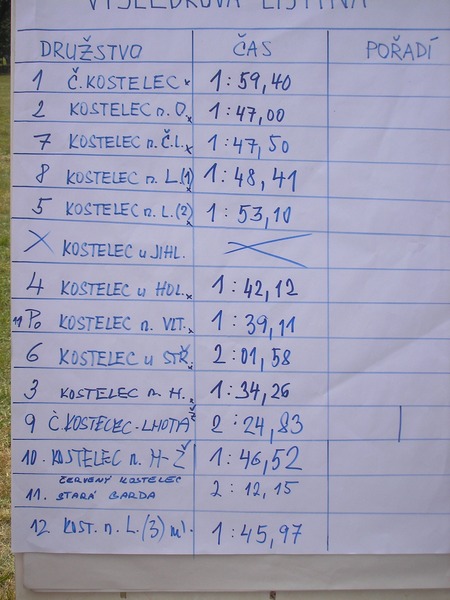 VÝSLEDKOVÁ LISTINA
DRUŽSTVO ČAS POŘADÍ
1 Č. KOSTELEC x 1:59,40
2 KOSTELEC n. O. x 1:47,00
7 KOSTELEC n. Č.L. x 1:47,50
8 KOSTELEC n. L.(1) x 1:48,41
5 KOSTELEC n. L.(2) x 1:53,10
X KOSTELEC u JIHL. X
4 KOSTELEC u HOL. x 1:42,12
KOSTELEC n. VLT. x 1:39,11
6 KOSTELEC u STŘ. 2:01,58
3 KOSTELEC n. H. 1:34,26
9 Č.KOSTELEC-LHOTA 2:24,83
10. KOSTELEC n. H-Ž 1:46,52
ČERVENÝ KOSTELEC
11. STARÁ GARDA 2:12,15
12 KOST. n. L.(3) ml. 1:45,97